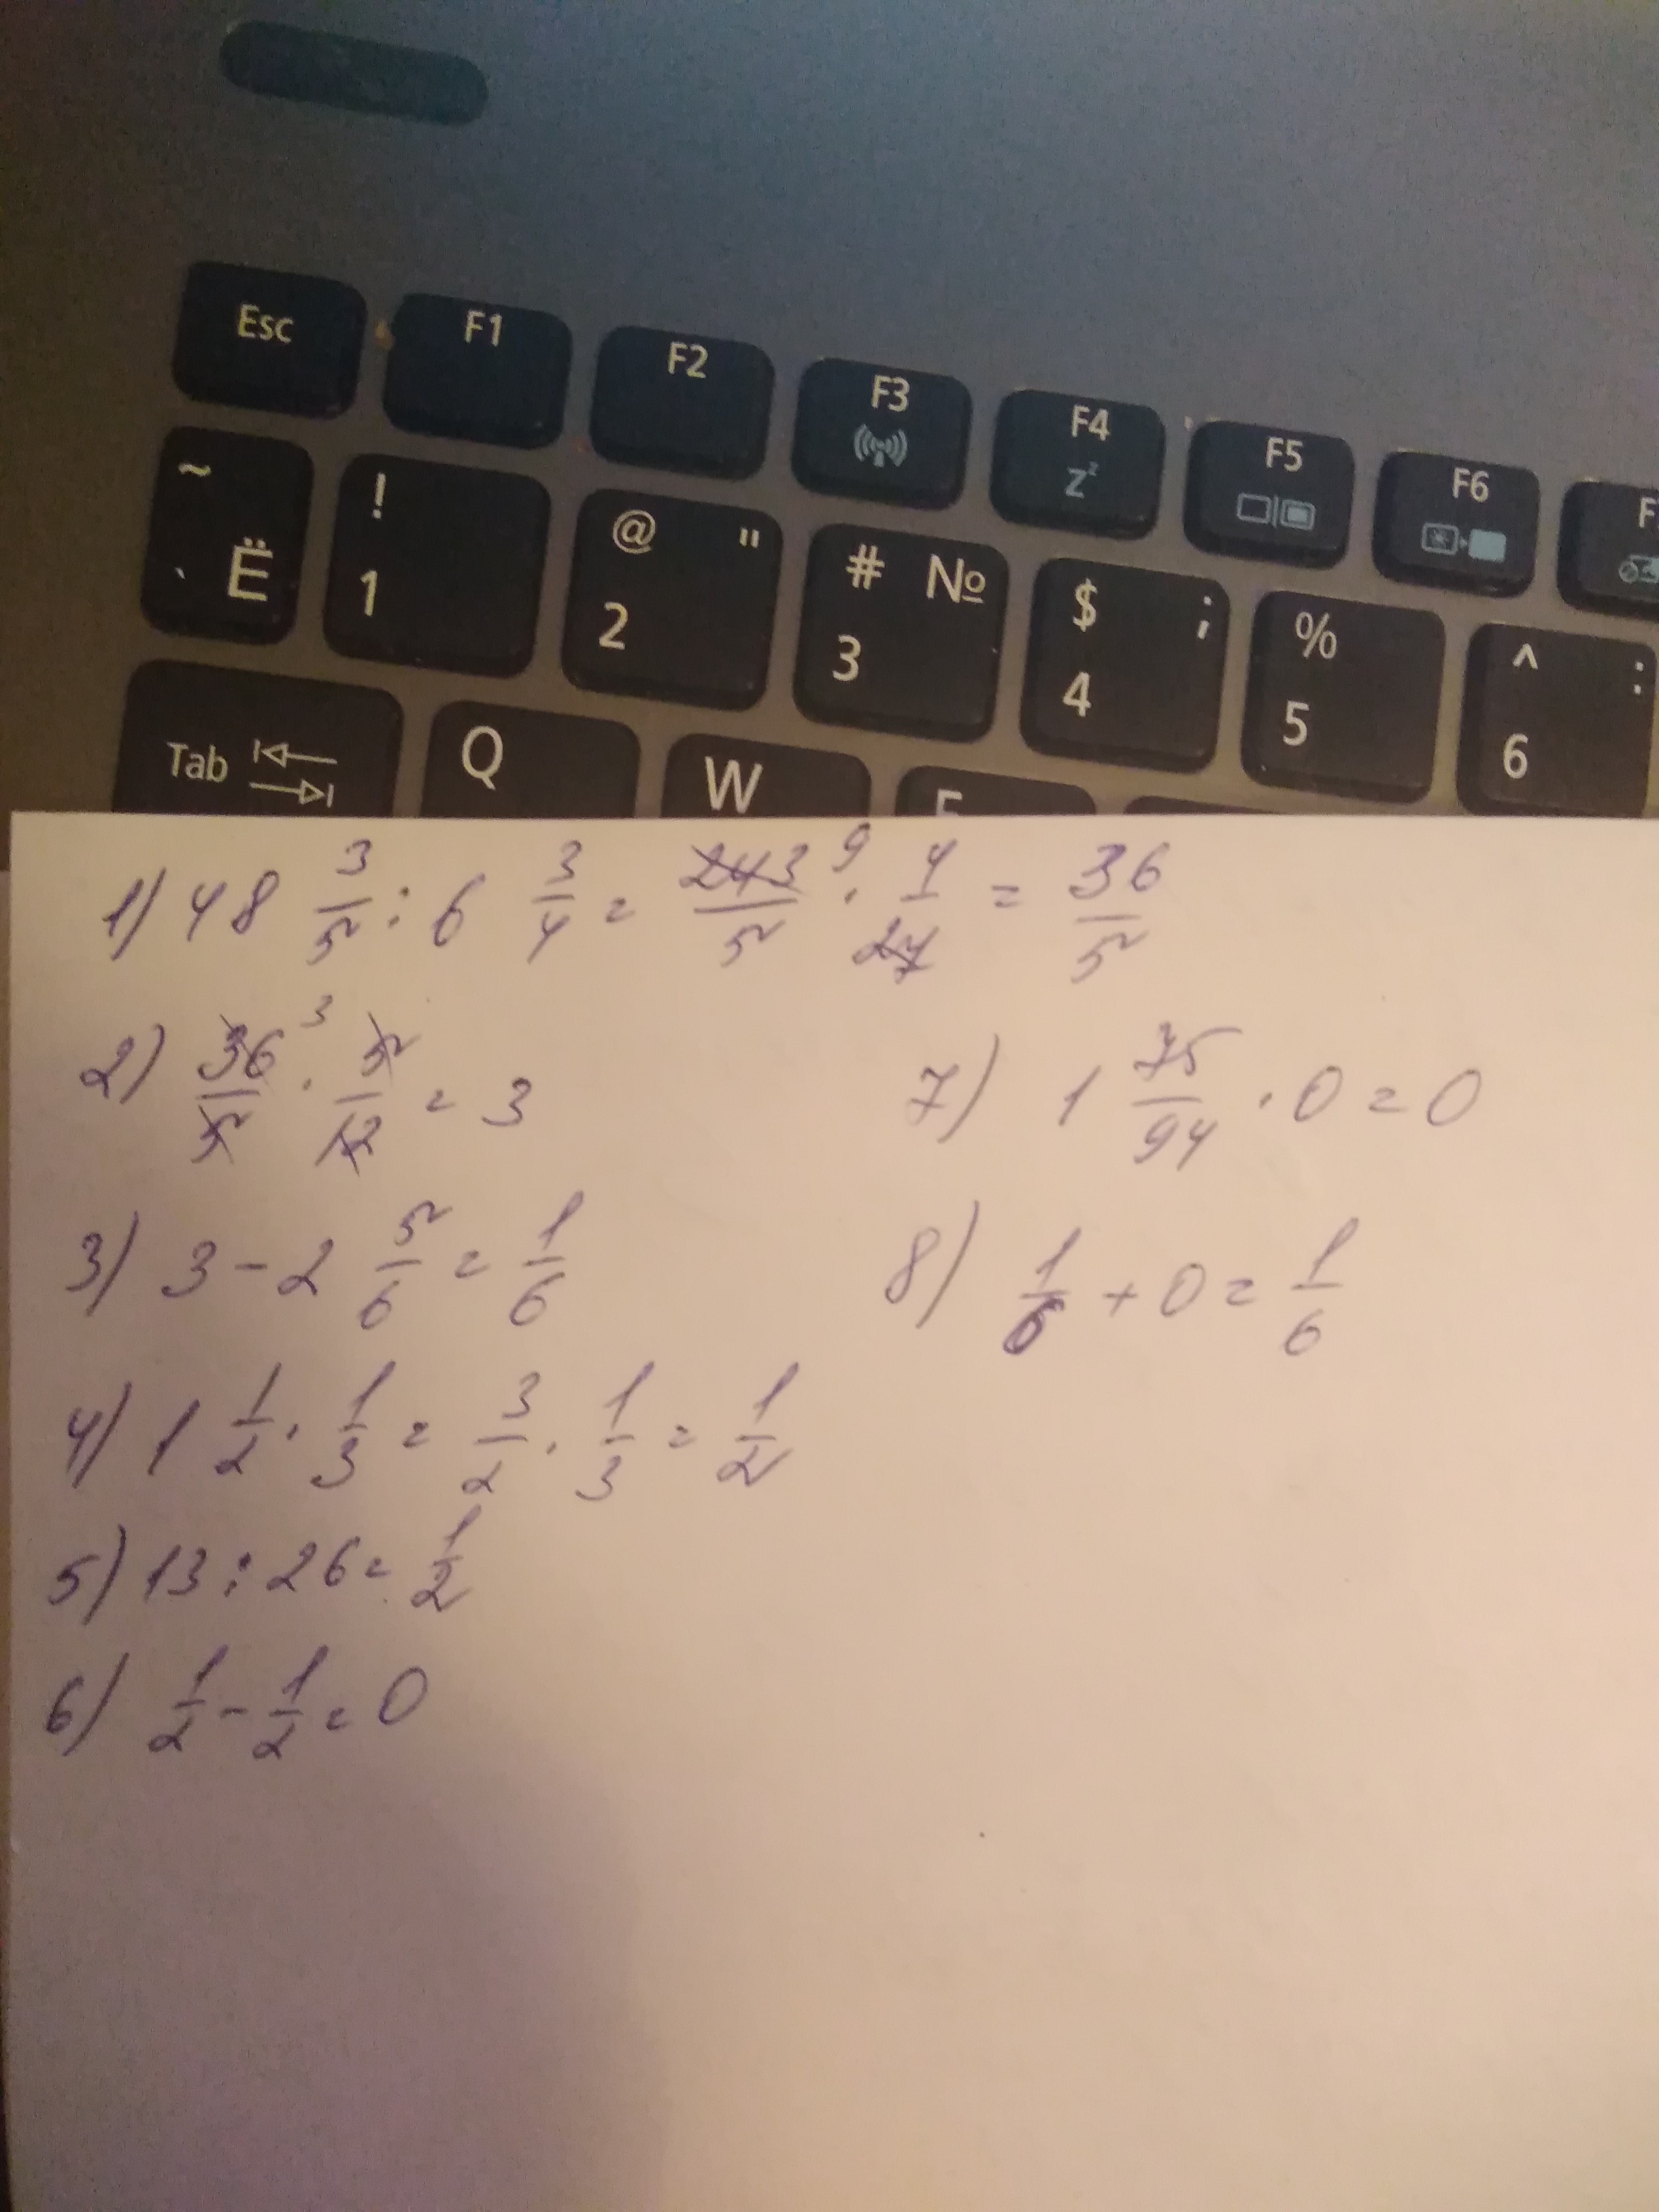 Esc F1 F2 F3 F4 F5 F6 F
~ ` Ё ! 1 @ " 2 # № 3 $ ; 4 % 5 ^ : 6
Tab Q W E
1) 48 3/5 : 6 3/4 = 243/5 9 · 4/27 = 36/5
2) 36/5 3 · 5/12 = 3
3) 3 - 2 5/6 = 1/6
4) 1 1/2 · 1/3 = 3/2 · 1/3 = 1/2
5) 13 : 26 = 1/2
6) 1/2 - 1/2 = 0
7) 1 75/94 · 0 = 0
8) 1/6 + 0 = 1/6